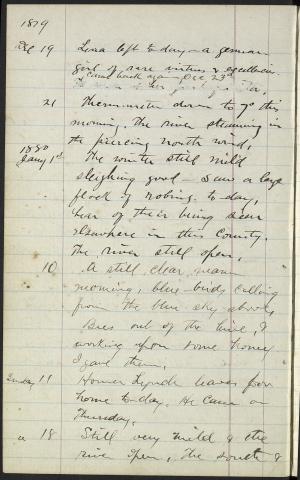 1879
Dec 19 Lena left to-day - a german
girl of rare virtues & excellencies.
came back again Dec. 23d
21 Thermometer down to 7° this
morning, the river steaming in
the piercing north wind,
1880
Jany 1st The winter still mild
sleighing good - Saw a large
flock of robins to-day,
hear of their being seen
elsewhere in this County.
The river still open,
10 A still clear warm
morning, blue-birds calling
from the blue sky above,
Bees out of the hive, &
working upon some honey
I gave them,
Sunday 11 Homer Lynch leaves for
home to-day. He came on
Thursday,
" 18 Still very mild & the
river open, The south &